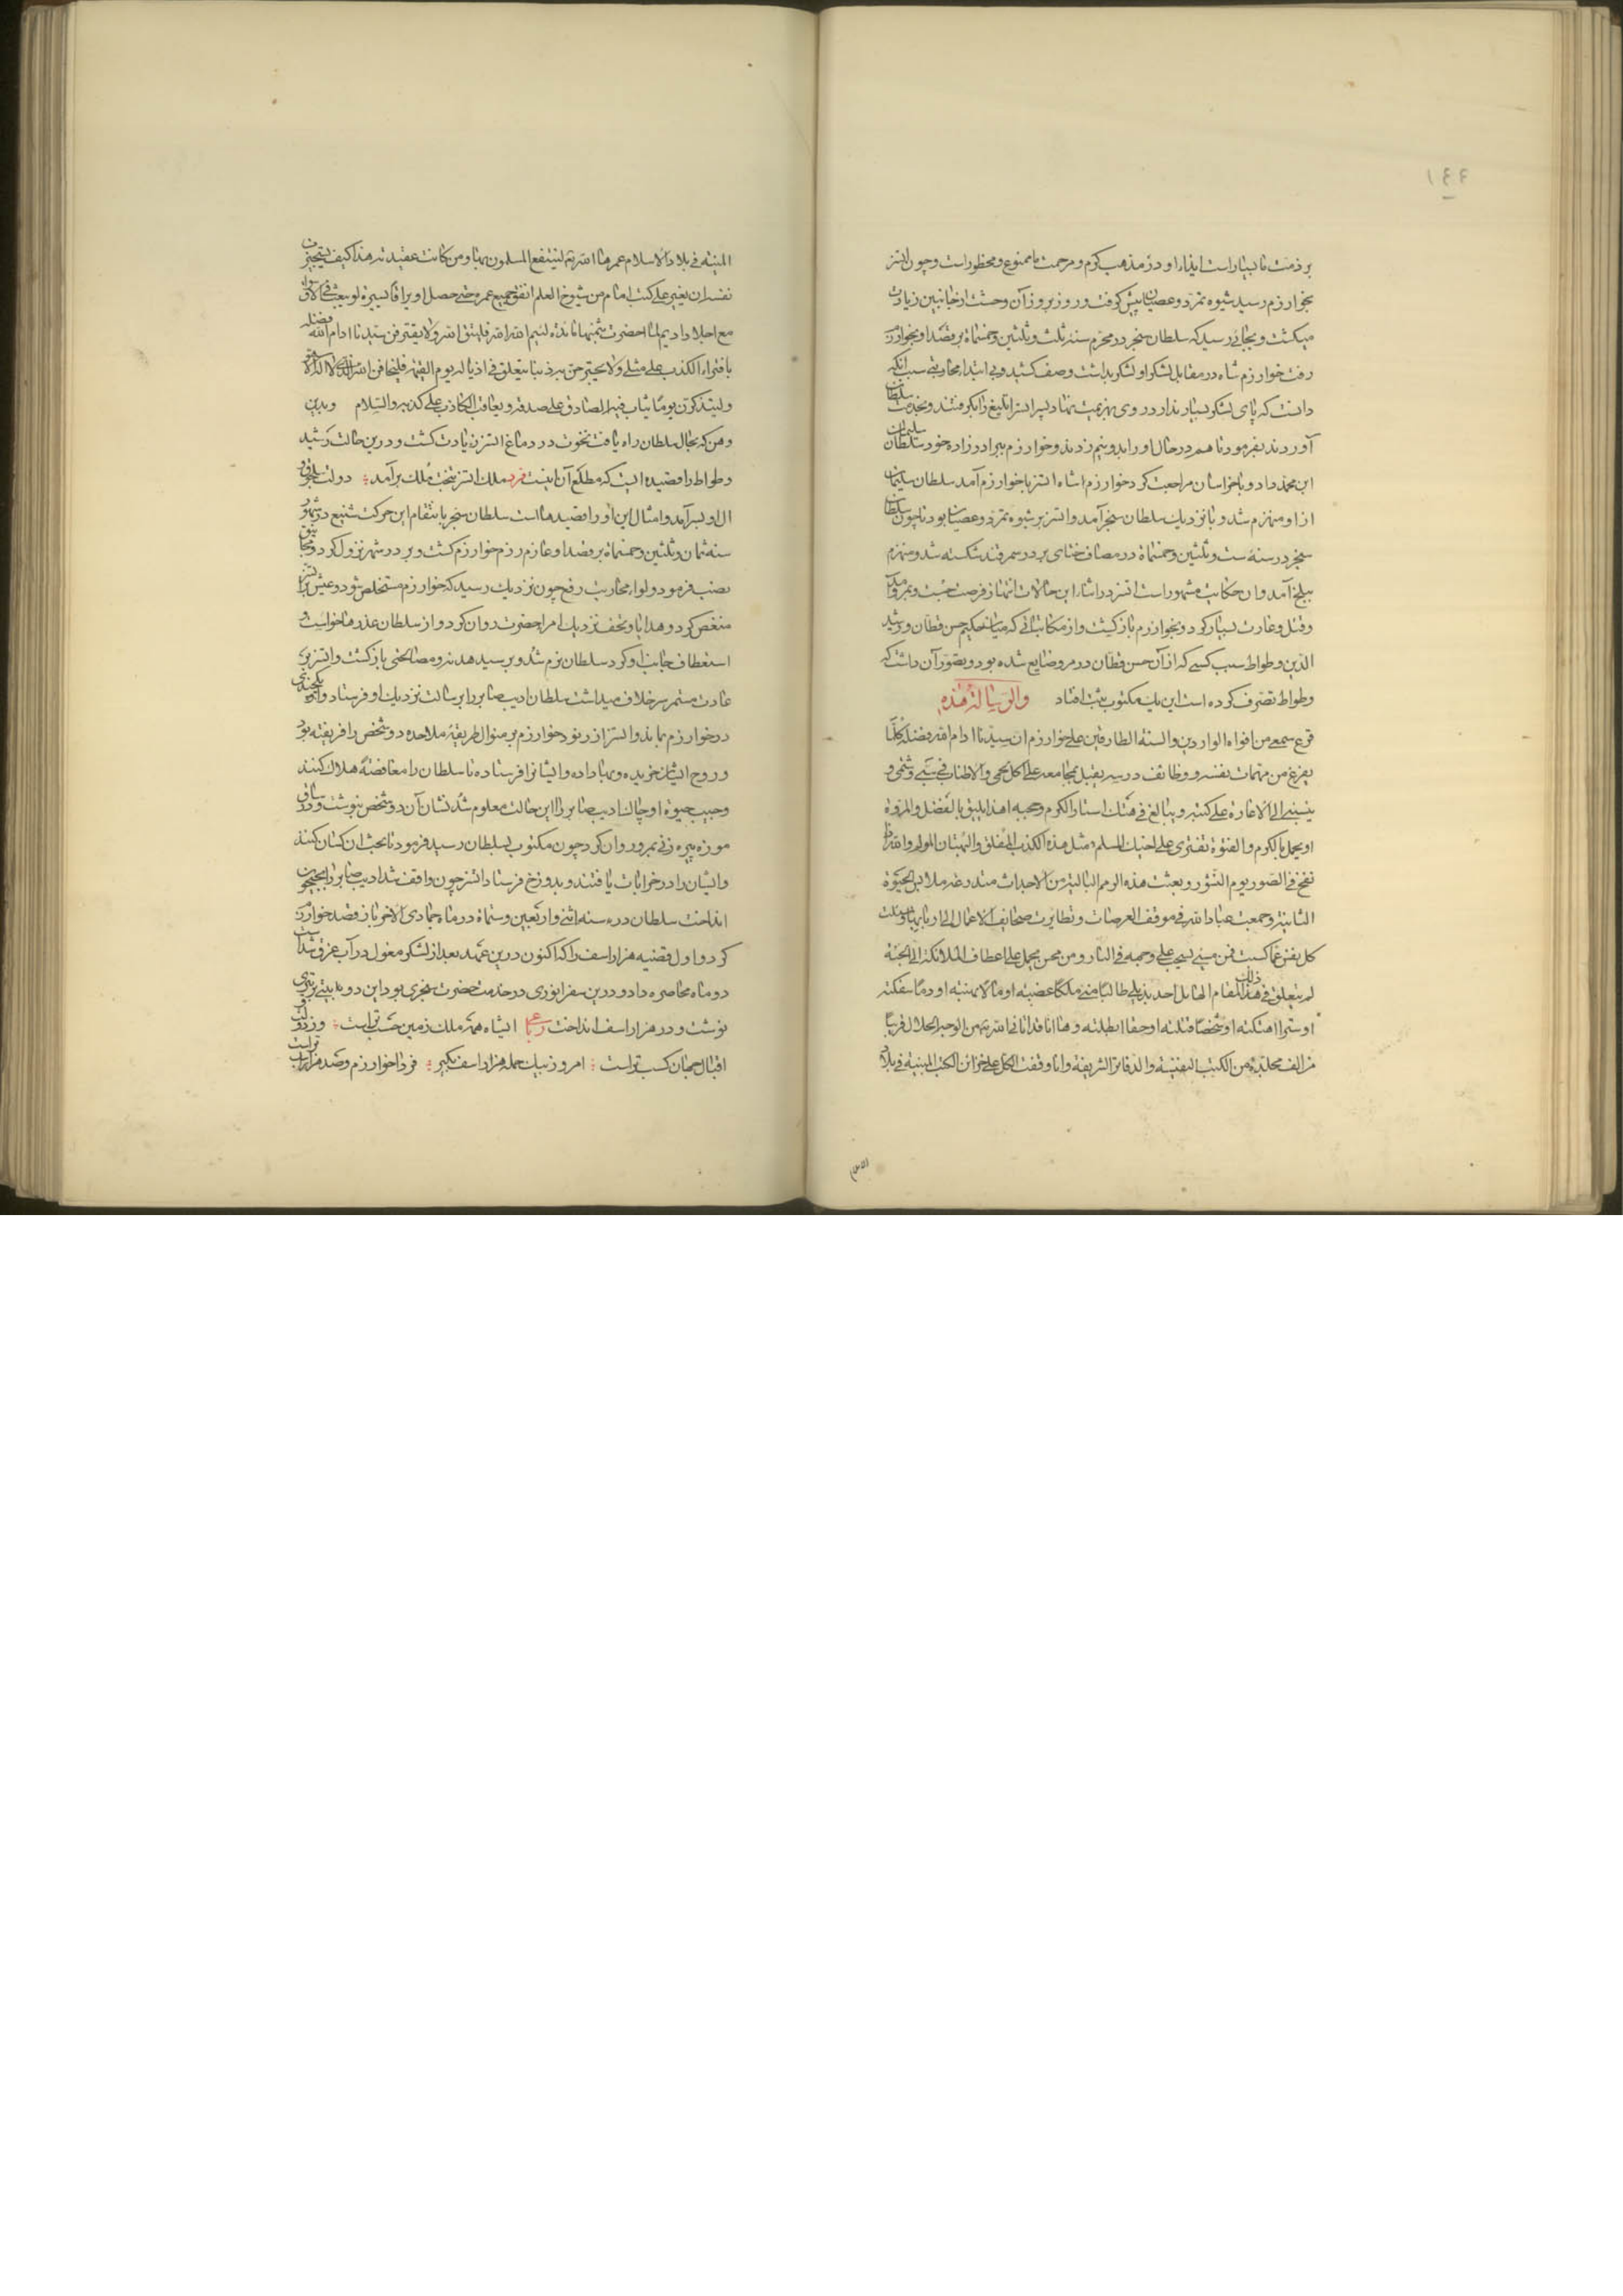 ١٤٤
بر ذمت ما بسیار است ایذاء او در مذهب کرم و مرحمت ما ممنوع و محظور است و چون اتسز
بخوارزم رسید شیوه تمرد و عصیان پیش گرفت و روز بروز آن وحشت از جانبین زیادت
میکشت و بجائی رسید که سلطان سنجر در محرم سنه ثلث و ثلثین و خمسمائة بر قصد او بخوارزم
رفت خوارزم شاه در مقابل لشکر او لشکر بداشت و صف کشید و بی ابتداء محاربتی سبب آنکه
دانست که پای لشکر بسیار ندارد روی بهزیمت نهاد پسر اتسز اتلیغ را بگرفتند و بخدمت سلطان
آوردند بفرمود تا هم در حال او را بدو نیم زدند و خوارزم ببرادرزاده خود سلطان سلیمان
ابن محمد داد و با خراسان مراجعت کرد خوارزم شاه اتسز با خوارزم آمد سلطان سلیمان
از او منهزم شد و با نزدیک سلطان سنجر آمد و اتسز بر شیوه تمرد و عصیان بود تا چون سلطان
سنجر در سنه ست و ثلثین و خمسمائة در مصاف ختای بر در سمرقند شکسته شد و منهزم
ببلخ آمد و آن حکایت مشهور است اتسز در اثناء این حالات انتهاز فرصت جست و بمرو آمد
و قتل و غارت بسیار کرد و بخوارزم باز گشت و از مکاتباتی که میان حکیم حسن قطان و رشید
الدین وطواط سبب کتبی که از آن حسن قطان در مرو ضایع شده بود و تصور آن داشت که
وطواط تصرف کرده است این یک مکتوب ثبت افتاد والرسالة هذه
قرع سمعی من افواه الواردین والسنة الطارقین علی خوارزم ان سیدنا ادام الله فضله کلما
یفرغ من مهمات نفسه ووظائف درسه یقبل بمجامعه علی اکل لحمی والاطناب فی سبی وشتمی و
ینسبنی الی الاغارة علی کتبه ویبالغ فی هتک استار الکرم وحجبه اهذا یلیق بالفضل والمروة
او یجمل بالکرم والفتوة تفتری علی اخیک المسلم مثل هذه الکذب المفلق والبهتان المولم والله اذا
نفخ فی الصور یوم النشور وبعثت هذه الرمم البالیة من الاجداث متدرعة ملابس الحیوة
الثانیة وجمعت عباد الله فی موقف العرصات وتطایرت صحایف الاعمال الی اربابها وسئلت
کل نفس عما کسبت فمن مسیء یسحب علی وجهه فی النار ومن محسن یحمل علی اعطاف الملائکة الی الجنة
لم یتعلق فی ذلک المقام الهایل احد بذیلی طالبا منی ملکا غصبته او مالا نهبته او دما سفکته
او سترا هتکته او شخصا قتلته او حقا ابطلته وها انا قد اتانی الله تم من الوجه الحلال قریبا
من الف مجلدة من الکتب النفیسة والدفاتر الشریفة وانا وقفت الکل علی خزائن الکتب المبنیة فی بلاد
المبنیة فی بلاد الاسلام عمرها الله تم لینتفع المسلمون بها ومن کانت عقیدته هذا کیف یستجیز من
نفسه ان یغیر علی کتب امام من شیوخ العلم انفق جمیع عمره حتی حصل اویراقا یسیرة لو بیعت فی الاسواق
مع اجلاد ادیم لما احضرت بثمنها مائدة لئیم الله الله فلیتق الله ولا یفتر فمن سیدنا ادام الله فضله
بافتراء الکذب علی مثلی ولا یحیر حق ربه ذنبا یتعلق فی اذیاله یوم القیمة فلیخافن الله الذی لا اله الا هو
ولیتذکرن یوما یثاب فیه الصادق علی صدقه ویعاقب الکاذب علی کذبه والسلام وبدین
وهن که بحال سلطان راه یافت نخوت در دماغ اتسز زیادت گشت و درین حالت رشید
وطواط را قصیده ایست که مطلع آن اینست فرد ملک اتسز بتخت ملک برآمد دولت سلجوق و
آل او بسر آمد و امثال این او را قصیدها است سلطان سنجر بانتقام این حرکت شنیع در شهور
سنه ثمان و ثلثین و خمسمائة بر قصد او عازم رزم خوارزم گشت و بر در شهر نزول کرد و مجانیق
نصب فرمود و لواء محاربت رفع چون نزدیک رسید که خوارزم مستخلص شود و عیش بر اتسز
منغص کرد و هدایا و تحف نزدیک امرا حضرت روان کرد و از سلطان عذرها خواست و
استعطاف جانب او کرد سلطان نرم شد و بر سبیل هدنه و مصالحتی باز گشت و اتسز بر
عادت مستمر سر خلاف میداشت سلطان ادیب صابر را برسالت نزدیک او فرستاد و او یکچندی
در خوارزم بماند و اتسز از رنود خوارزم بر منوال طریقه ملاحده دو شخص را فریفته بود
و روح ایشان خریده و بها داده و ایشانرا فرستاده تا سلطان را مغافصة هلاک کنند
و جیب حیوة او چاک ادیب صابر را این حالت معلوم شد نشان آن دو شخص بنوشت و در ساق
موزه پیره زنی بمرو روان کرد چون مکتوب بسلطان رسید فرمود تا بحث آن کسان کنند
و ایشان را در خرابات یافتند و بدوزخ فرستاد اتسز چون واقف شد ادیب صابر را بجیحون
انداخت سلطان در سنه اثنی و اربعین و ستمائة در ماه جمادی الآخر باز قصد خوارزم
کرد و اول قصبه هزاراسف را که اکنون درین عهد بعد از لشکر مغول در آب غرق شدست
دو ماه محاصره داد و درین سفر انوری در خدمت حضرت سنجری بود این دو بیتی بر تیری
نوشت و در هزاراسف انداخت رباعی ای شاه همه ملک زمین حسب تراست وز دولت و
اقبال جهان کسب تراست امروز بیک حمله هزاراسف بگیر فردا خوارزم و صد هزار اسب تراست